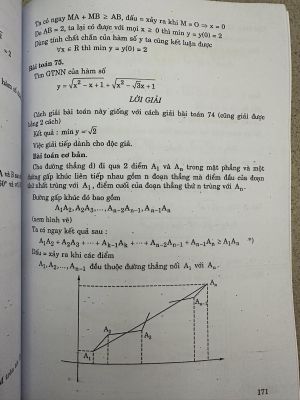 Ta có ngay MA + MB ≥ AB, dấu = xảy ra khi M = O ⇒ x = 0
Do AB = 2, ta lại có được với mọi x ≥ 0 thì min y = y(0) = 2
Dùng tính chất chẵn của hàm số y ta cũng kết luận được
∀x ∈ R thì min y = y(0) = 2
Bài toán 75.
Tìm GTNN của hàm số
y = √x² – x + 1 + √x² – √3x + 1
LỜI GIẢI
Cách giải bài toán này giống với cách giải bài toán 74 (cũng giải được
bằng 2 cách)
Kết quả : min y = √2
Việc giải tiếp dành cho độc giả.
Bài toán cơ bản.
Cho đường thẳng d) đi qua 2 điểm A₁ và Aₙ trong mặt phẳng và một
đường gấp khúc liên tiếp nhau gồm n đoạn thẳng mà điểm đầu của đoạn
thứ nhất trùng với A₁, điểm cuối của đoạn thẳng thứ n trùng với Aₙ.
Đường gấp khúc đó bao gồm
A₁A₂, A₂A₃,..., Aₙ₋₂Aₙ₋₁, Aₙ₋₁Aₙ
(xem hình vẽ)
Ta có ngay kết quả sau :
A₁A₂ + A₂A₃ + ··· + Aₖ₋₁Aₖ + ··· + Aₙ₋₂Aₙ₋₁ + Aₙ₋₁Aₙ ≥ A₁Aₙ *)
Dấu = xảy ra khi các điểm
A₁, A₂,..., Aₙ₋₁ đều thuộc đường thẳng nối A₁ với Aₙ.
Aₙ
Aₙ₋₁
A₂
A₃
A₁
171